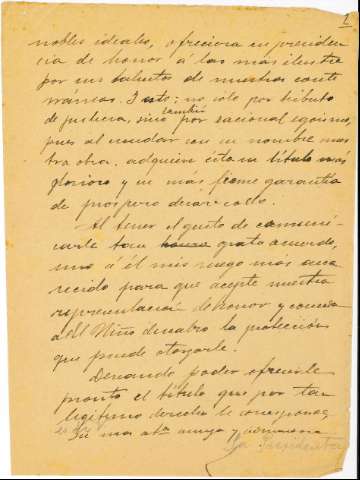 2
nobles ideales, ofreciera su presiden
cia de honor á la más ilustre
por sus talentos de nuestras conte
rráneas. Y esto: no sólo por tributo
de justicia, sino también por racional egoismo,
pues al escudar con su nombre nues
tra obra, adquiere ésta un título más
glorioso y su más firme garantía
de próspero desarrollo.
Al tener el gusto de comuni-
carle tan grato acuerdo,
uno á él mis ruego más enca
recido para que acepte nuestra
representación de honor y conceda
al Niño la protección
que puede otorgarle.
Deseando poder ofrecerle
pronto el título que por tan
legítimo derecho le corresponde,
es de V.
Su más atta amiga y
La Presidenta